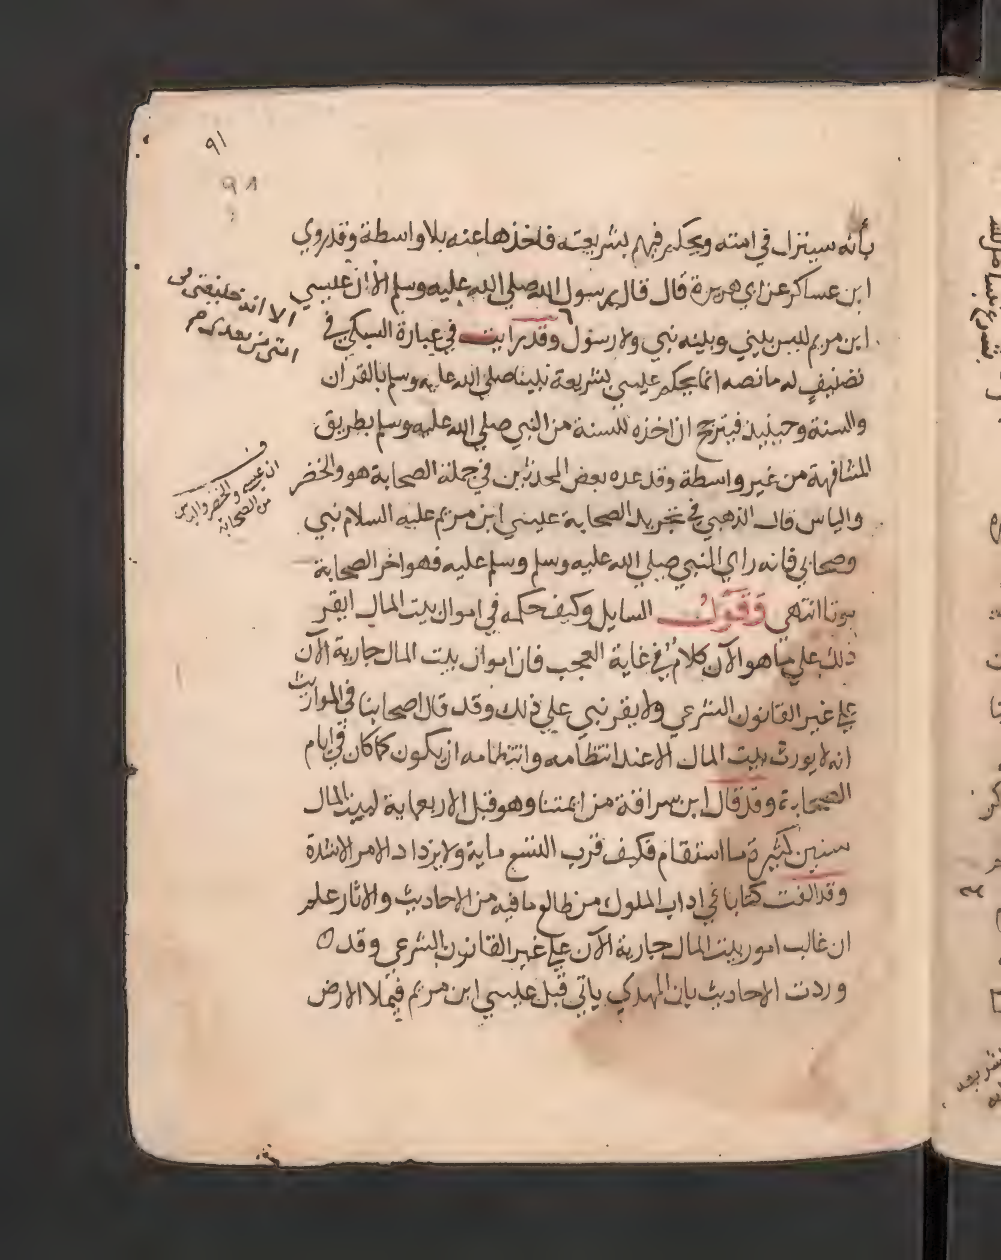 ٩١
٩٨
بأنه سينزل في امته ويحكم فيهم بشريعته فاخذها عنه بلا واسطة وقد روي
ابن عساكر عن ابي هريرة قال قال رسول الله صلي الله عليه وسلم الا ان عيسي
ابن مريم ليس بيني وبينه نبي ولا رسول وقد رايت في عبارة السبكي في
الا انه خليفتي في
امتي من بعدي م
تصنيف له ما نصه انما يحكم عيسي بشريعة نبينا صلي الله عليه وسلم بالقران
والسنة وحينيذ فيترجح ان اخذه للسنة من النبي صلي الله عليه وسلم بطريق
المشافهة من غير واسطة وقد عده بعض المحدثين في جملة الصحابة هو والخضر
قف
ان عيسى والخضر والياس
من الصحابة
والياس قال الذهبي في تجريد الصحابة عيسي ابن مريم عليه السلام نبي
وصحابي فانه راي النبي صلي الله عليه وسلم وسلم عليه فهو اخر الصحابة
موتا انتهي وقول السايل وكيف حكمه في اموال بيت المال ايقر
ذلك علي ما هو الآن كلام في غاية العجب فان اموال بيت المال جارية الآن
علي غير القانون الشرعي ولا يقر نبي علي ذلك وقد قال اصحابنا في المواريث
انه لا يورث بيت المال الا عند انتظامه وانتظامه ان يكون كما كان في ايام
الصحابة وقد قال ابن سراقة من ايمتنا وهو قبل الاربعماية لبيت المال
سنين كثيرة ما استقام فكيف قرب التسع ماية ولا يزداد الامر الا شدة
وقد الفت كتابا في اداب الملوك من طالع ما فيه من الاحاديث والاثار علم
ان غالب امور بيت المال جارية الآن علي غير القانون الشرعي وقد
وردت الاحاديث بان المهدي ياتي قبل عيسي ابن مريم فيملا الارض